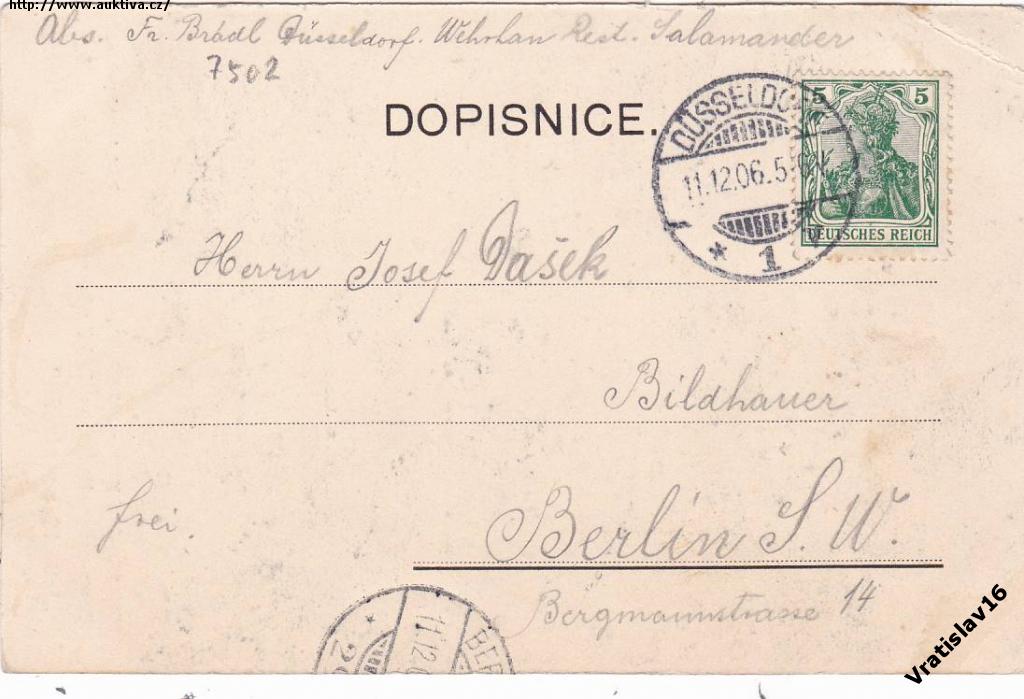 http://www.auktiva.cz/
Abs. Fr. Brádl Düsseldorf. Wehrhan Rest. Salamander
7502
DOPISNICE.
DÜSSELDORF
11.12.06.5-6N
* 1
5 5
DEUTSCHES REICH
Herrn Josef Dašek
Bildhauer
frei.
Berlin S. W.
Bergmannstrasse 14
11.12.0
BER
Vratislav16